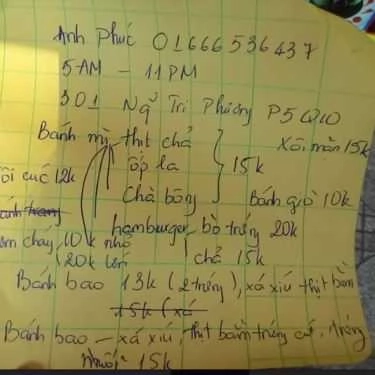 Anh Phúc 01666536437
5AM - 11PM
301 Ngữ Tri Phương P5 Q10
Bánh mì thịt chả
ốp la
Chà bông
15k
Xôi mặn 15k
ôi cúc 12k
Bánh giò 10k
hamburger bò trứng 20k
chả 15k
ơm cháy 10k nhỏ
20k lớn
Bánh bao 13k (2 trứng), xá xíu thịt bằm
15k (xá
Bánh bao - xá xíu, thịt bằm trứng cút, trứng
muối 15k